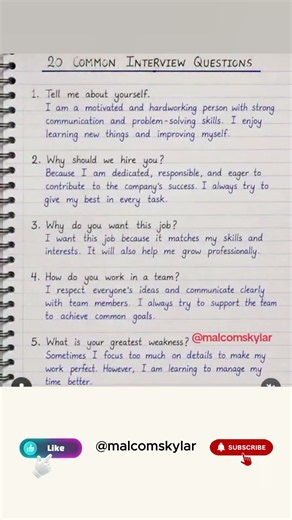 20 COMMON INTERVIEW QUESTIONS
1. Tell me about yourself.
I am a motivated and hardworking person with strong
communication and problem-solving skills. I enjoy
learning new things and improving myself.
2. Why should we hire you?
Because I am dedicated, responsible, and eager to
contribute to the company's success. I always try to
give my best in every task.
3. Why do you want this job?
I want this job because it matches my skills and
interests. It will also help me grow professionally.
4. How do you work in a team?
I respect everyone's ideas and communicate clearly
with team members. I always try to support the team
to achieve common goals.
@malcomskylar
5. What is your greatest weakness?
Sometimes I focus too much on details to make my
work perfect. However, I am learning to manage my
time better.
Like
@malcomskylar
SUBSCRIBE